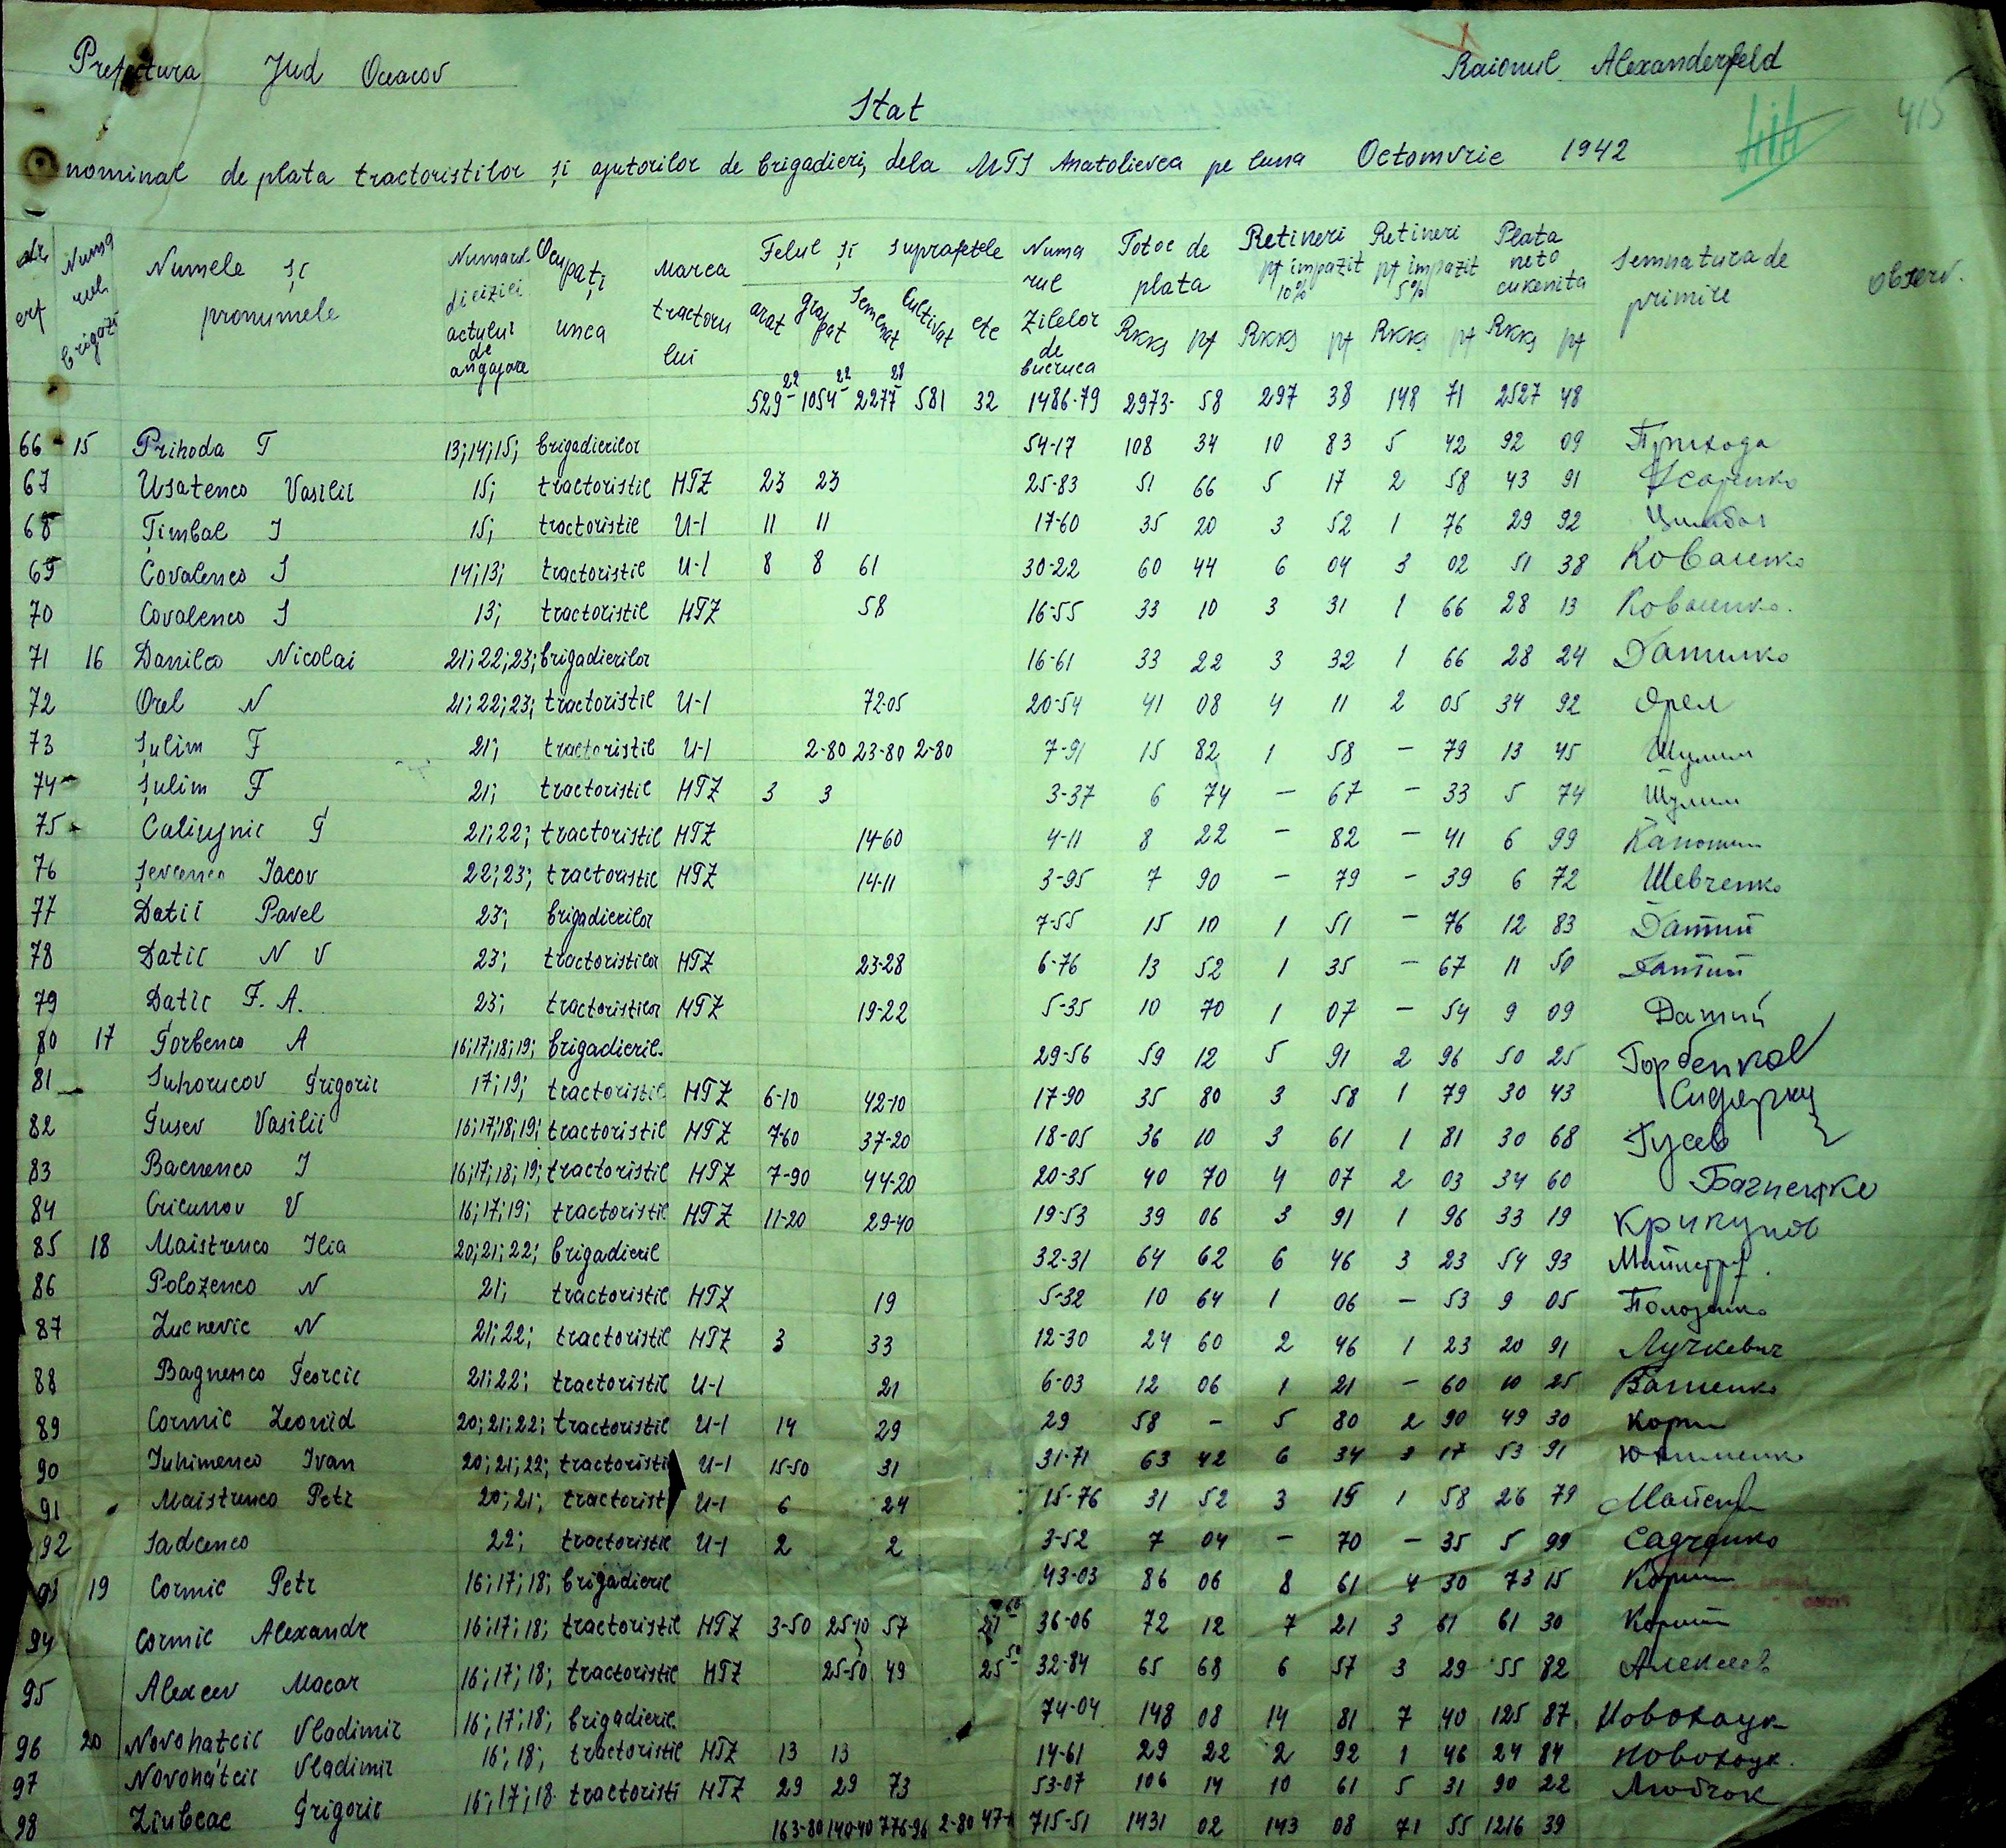 Prefectura Jud Oceacov
Raionul Alexanderfeld
415
Stat
nominal de plata tractoristilor și ajutorilor de brigadieri, dela MTS Anatolievca pe luna Octomvrie 1942
Numele și pronumele
Numarul diciziei actului de angajare
Ocupați unea
Marca tractoru lui
Felul și suprafetele
arat grapat semenat cultivat etc
Numa rul zilelor de bucruca
Totoe de plata Rkks pf
Retineri pt impazit 10% Rkks pf
Retineri pt impazit 5% Rkks pf
Plata neto cukenita Rkks pf
Semnatura de primire
observ.
529-22 1054-22 2277-28 581 32 1486-79 2973- 58 297 38 148 71 2527 48
66 15 Prihoda T 13;14;15; brigadierilor 54-17 108 34 10 83 5 42 92 09 Прихода
67 Usatenco Vasilii 15; tractoristil HTZ 23 23 25-83 51 66 5 17 2 58 43 91 Усатенко
68 Țimbal I 15; tractoristil U-1 11 11 17-60 35 20 3 52 1 76 29 92 Цимбал
69 Covalenco I 14;13; tractoristil U-1 8 8 61 30-22 60 44 6 04 3 02 51 38 Коваленко
70 Covalenco I 13; tractoristil HTZ 58 16-55 33 10 3 31 1 66 28 13 Коваленко.
71 16 Danilco Nicolai 21;22;23; brigadierilor 16-61 33 22 3 32 1 66 28 24 Данилко
72 Orel N 21;22;23; tractoristil U-1 72-05 20-54 41 08 4 11 2 05 34 92 Орел
73 Șulim F 21; tractoristil U-1 2-80 23-80 2-80 7-91 15 82 1 58 - 79 13 45 Шулим
74 Șulim F 21; tractoristil HTZ 3 3 3-37 6 74 - 67 - 33 5 74 Шулим
75 21;22; tractoristil HTZ 14-60 4-11 8 22 - 82 - 41 6 99
76 Șevcenco Iacov 22;23; tractoristil HTZ 14-11 3-95 7 90 - 79 - 39 6 72 Шевченко
77 Datii Pavel 23; brigadierilor 7-55 15 10 1 51 - 76 12 83 Датий
78 Datii N V 23; tractoristilor HTZ 23-28 6-76 13 52 1 35 - 67 11 50 Датий
79 Datii F. A. 23; tractoristilor HTZ 19-22 5-35 10 70 1 07 - 54 9 09 Датий
80 17 Gorbenco A 16;17;18;19; brigadieril. 29-56 59 12 5 91 2 96 50 25 Горбенков
81 Suhorucov Grigorii 17;19; tractoristil HTZ 6-10 42-10 17-90 35 80 3 58 1 79 30 43
82 Gusev Vasilii 16;17;18;19; tractoristil HTZ 7-60 37-20 18-05 36 10 3 61 1 81 30 68 Гусев
83 Bacnenco I 16;17;18;19; tractoristil HTZ 7-90 44-20 20-35 40 70 4 07 2 03 34 60 Багненко
84 Cricunov V 16;17;19; tractoristil HTZ 11-20 29-40 19-53 39 06 3 91 1 96 33 19 Крикунов
85 18 Maistrenco Ilia 20;21;22; brigadieril 32-31 64 62 6 46 3 23 54 93
86 Polozenco N 21; tractoristil HTZ 19 5-32 10 64 1 06 - 53 9 05 Полозенко
87 Lucnevic N 21;22; tractoristil HTZ 3 33 12-30 24 60 2 46 1 23 20 91 Лучкевич
88 Bagnenco Georcii 21;22; tractoristil U-1 21 6-03 12 06 1 21 - 60 10 25
89 Cormic Leonid 20;21;22; tractoristil U-1 14 29 29 58 - 5 80 2 90 49 30
90 Iuhimenco Ivan 20;21;22; tractoristi U-1 15-50 31 31-71 63 42 6 34 3 17 53 91 Юхименко
91 Maistrenco Petr 20;21; tractorist U-1 6 24 15-76 31 52 3 15 1 58 26 79
92 Sadcenco 22; tractoristil U-1 2 2 3-52 7 04 - 70 - 35 5 99 Садченко
93 19 Cormic Petr 16;17;18; brigadieril 43-03 86 06 8 61 4 30 73 15
94 Cormic Alexandr 16;17;18; tractoristil HTZ 3-50 25-40 57 36-06 72 12 7 21 3 61 61 30
95 Alexeev Macar 16;17;18; tractoristil HTZ 25-50 49 25-50 32-84 65 68 6 57 3 29 55 82 Алексеев
96 20 Novohațcii Vladimir 16;17;18; brigadieril. 74-04 148 08 14 81 7 40 125 87
97 Novohațcii Vladimir 16;18; tractoristil HTZ 13 13 14-61 29 22 2 92 1 46 24 84
98 Liubceac Grigorii 16;17;18. tractoristi HTZ 29 29 73 53-07 106 14 10 61 5 31 90 22 Любчок
163-80 140-40 776-96 2-80 715-51 1431 02 143 08 71 55 1216 39